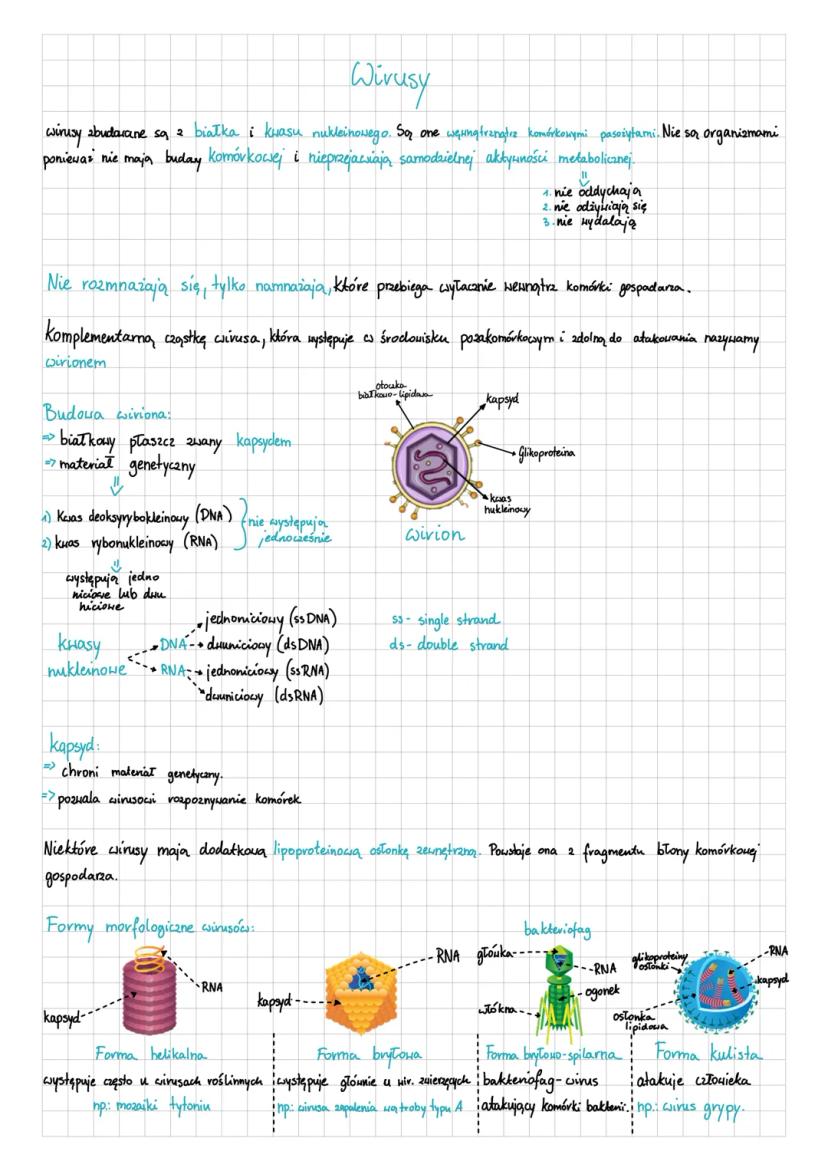 Wirusy
wirusy zbudowane są z białka i kwasu nukleinowego. Są one wewnątrznątrz komórkowymi pasożytami. Nie są organizmami
ponieważ nie mają budowy komórkowej i nieprzejawiają samodzielnej aktywności metabolicznej.
1. nie oddychają
2. nie odżywiają się
3. nie wydalają
Nie rozmnażają się, tylko namnażają, które przebiega wyłacznie wewnątrz komórki gospodarza.
Komplementarną cząstkę wirusa, która występuje w środowisku pozakomórkowym i zdolną do atakowania nazywamy
wirionem
Budowa wiriona:
=> białkowy płaszcz zwany kapsydem
=> materiał genetyczny
1) Kwas deoksyrybokleinowy (DNA)
2) kwas rybonukleinowy (RNA)
nie występują
jednocześnie
występują jedno
niciowe lub dwu
niciowe
otoczka
białkowo-lipidowa
kapsyd
Glikoproteina
kwas
nukleinowy
wirion
kwasy
nukleinowe
DNA
RNA
jednoniciowy (ssDNA)
dwuniciowy (dsDNA)
jednoniciowy (ssRNA)
dwuniciowy (dsRNA)
ss- single strand
ds- double strand
kapsyd:
=> chroni materiał genetyczny.
=> pozwala wirusowi rozpoznywanie komórek
Niektóre wirusy mają dodatkową lipoproteinową osłonkę zewnętrzną. Powstaje ona z fragmentu błony komórkowej
gospodarza.
Formy morfologiczne wirusów:
RNA
kapsyd
Forma helikalna
występuje często w wirusach roślinnych
np.: mozaiki tytoniu
RNA
kapsyd
Forma bryłowa
występuje głównie u wir. zwierzęcych
np.: wirusa zapalenia wątroby typu A
bakteriofag
główka
RNA
ogonek
włókna
Forma bryłowo-spilarna
bakteriofag- wirus
atakujący komórki bakterii.
glikoproteiny
osłonki
RNA
kapsyd
osłonka
lipidowa
Forma kulista
atakuje człowieka
np.: wirus grypy.